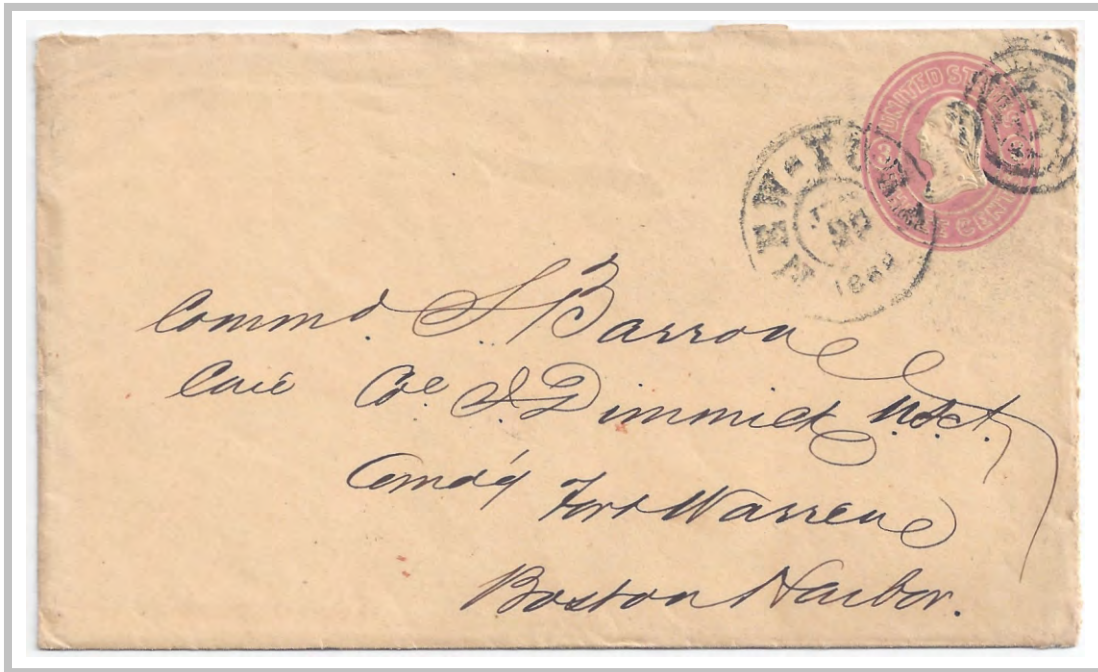 UNITED STATES
THREE CENTS
NEW-YORK
1862
Commd. S. Barron
Care Col J. Dimmick U.S.A.
Comd'g Fort Warren
Boston Harbor.